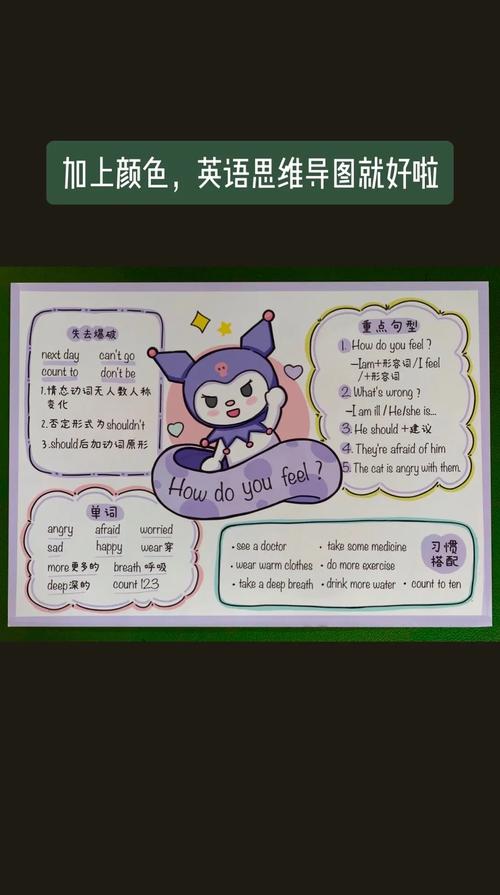 加上颜色，英语思维导图就好啦
失去爆破
next day can't go
count to don't be
1.情态动词无人数人称
变化
2.否定形式为shouldn't
3.should后加动词原形
How do you feel?
重点句型
1. How do you feel?
—Iam+形容词/I feel
/+形容词
2. What's wrong?
—I am ill / He/she is...
3. He should +建议
4. They're afraid of him
5. The cat is angry with them.
单词
angry afraid worried
sad happy wear穿
more更多的 breath呼吸
deep深的 count 123
•see a doctor •take some medicine
•wear warm clothes •do more exercise
•take a deep breath •drink more water •count to ten
习惯
搭配